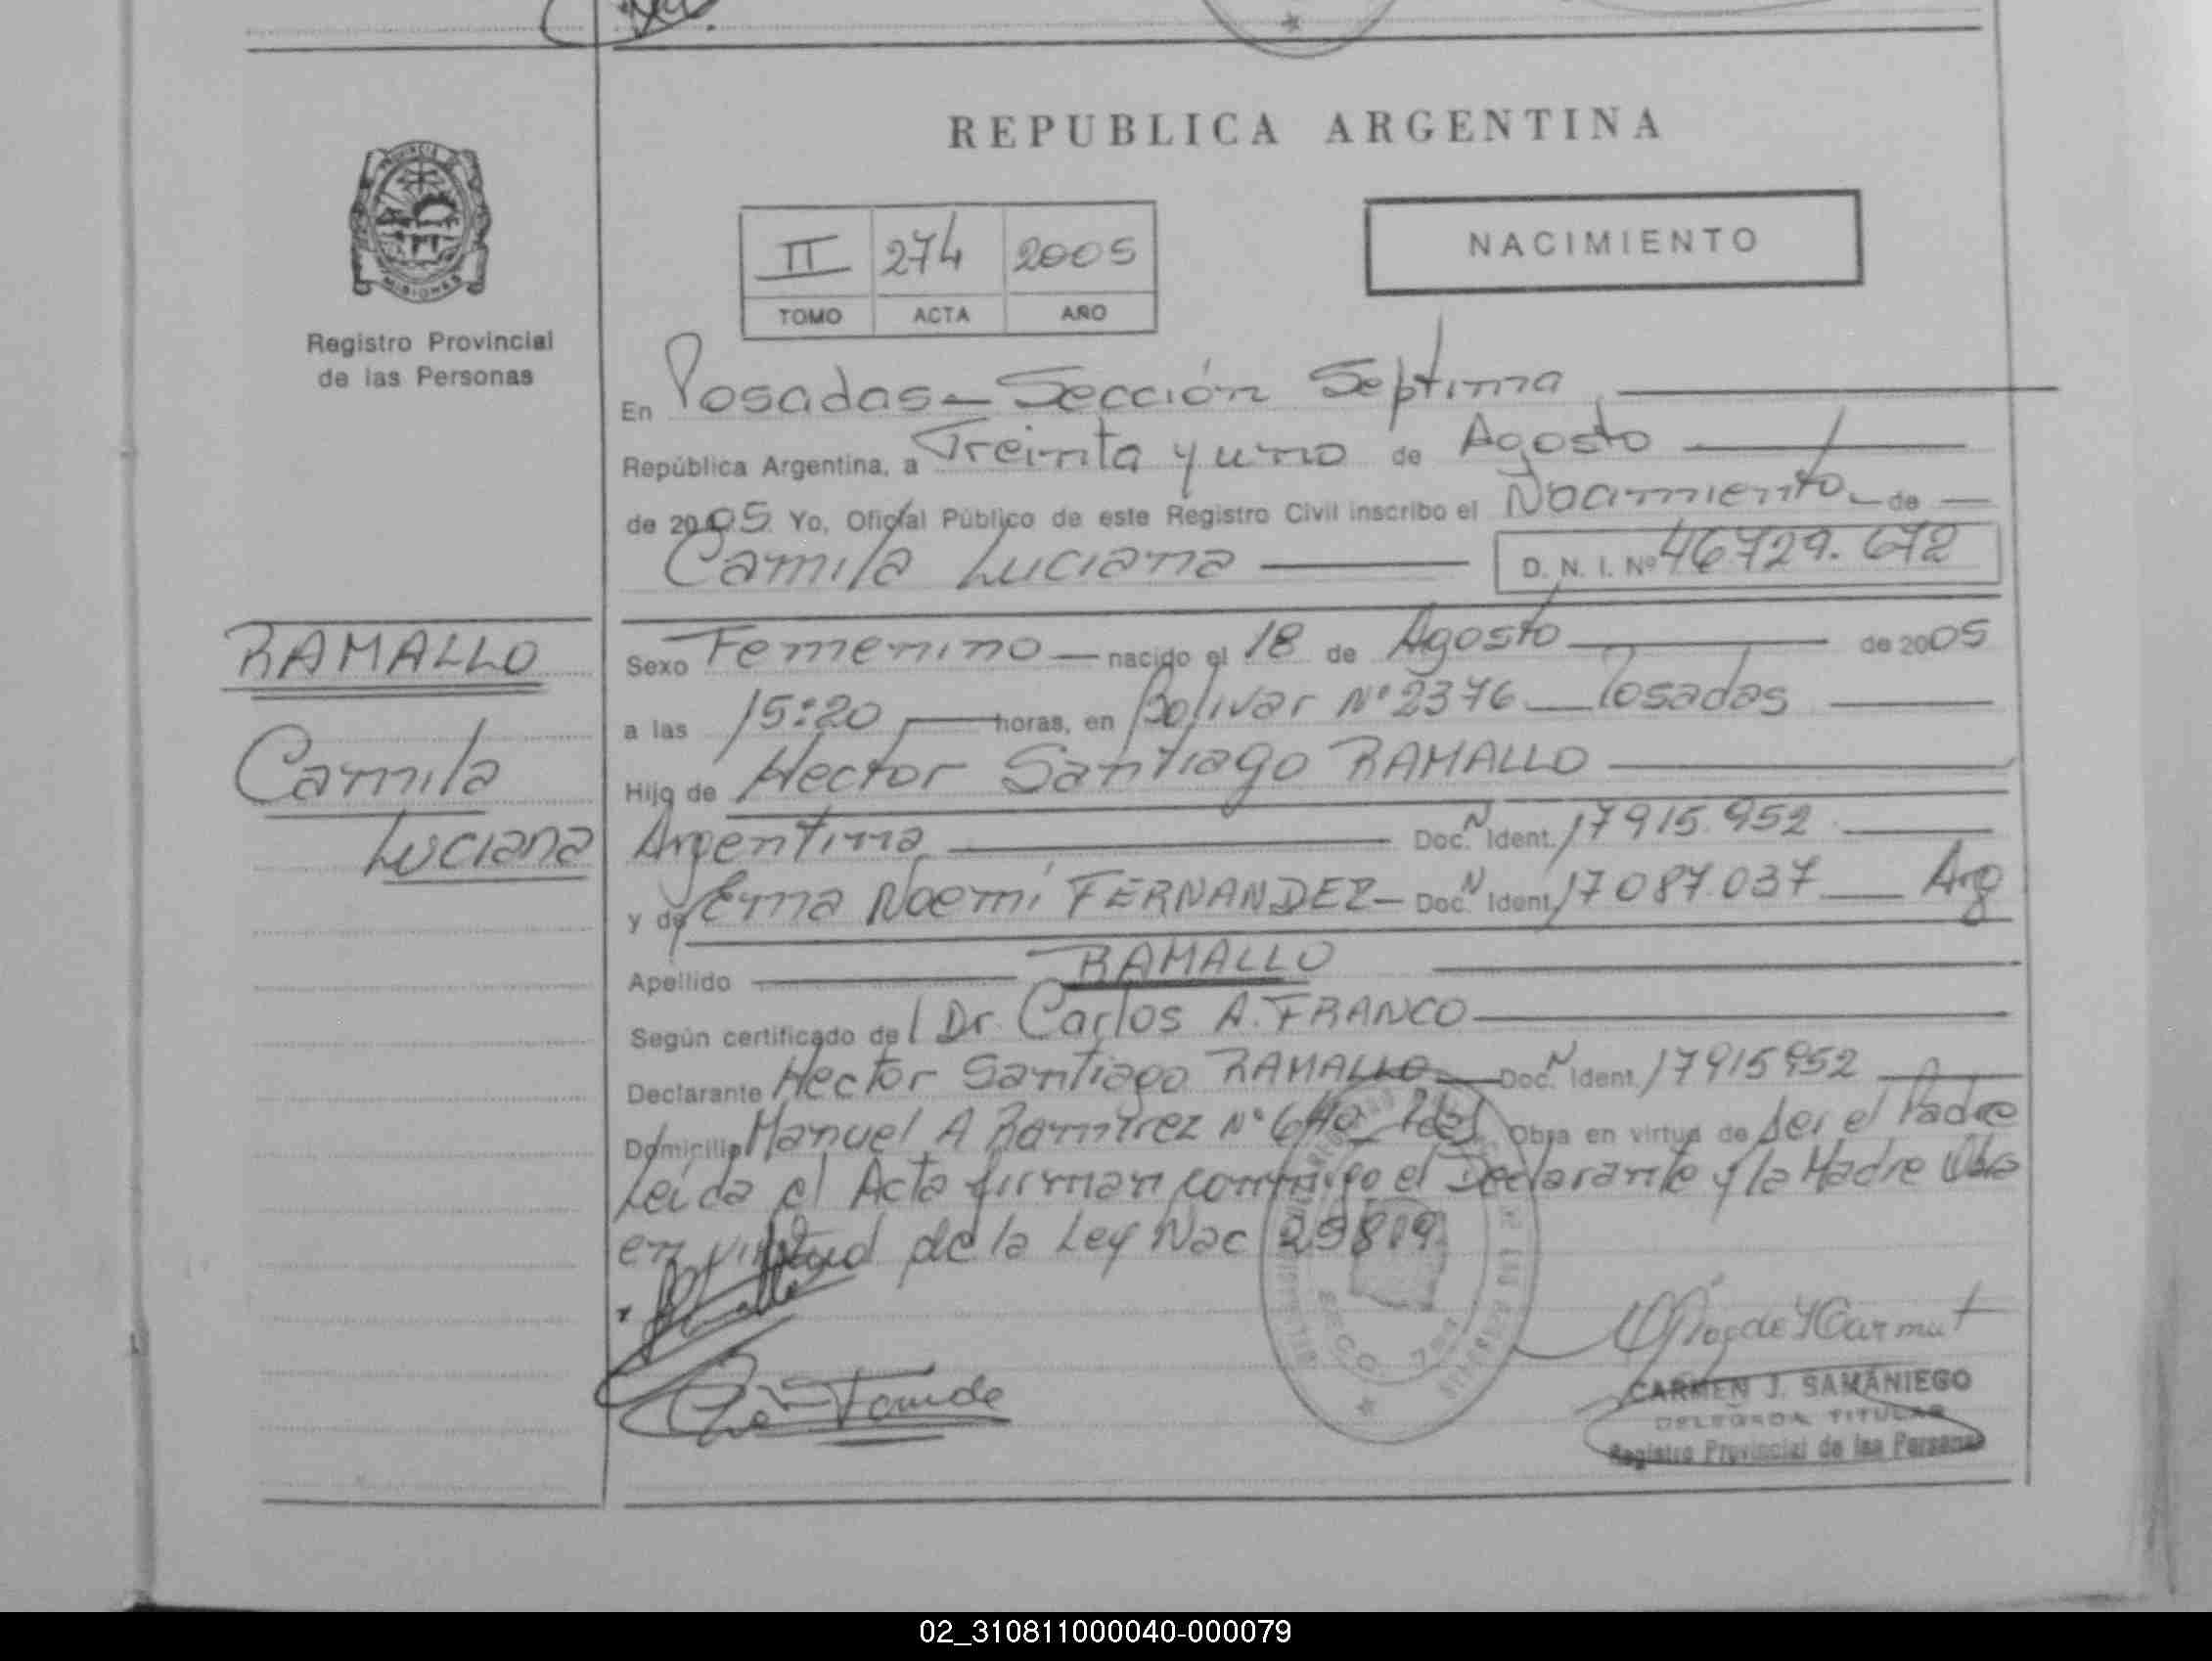 REPUBLICA ARGENTINA
PROVINCIA DE
MISIONES
Registro Provincial
de las Personas
II 274 2005
TOMO ACTA AÑO
NACIMIENTO
En Posadas - Sección Septima
República Argentina, a Treinta y uno de Agosto
de 2005 Yo, Oficial Público de este Registro Civil inscribo el Nacimiento de
Camila Luciana D. N. I. Nº 46729.672
RAMALLO
Camila
Luciana
Sexo Femenino nacido el 18 de Agosto de 2005
a las 15:20 horas, en Bolivar Nº 2376 Posadas
Hijo de Hector Santiago RAMALLO
Argentina Doc. N Ident. 17915.952
y de Erna Noemí FERNANDEZ Doc. N Ident. 17087.037 Arg
Apellido RAMALLO
Según certificado del Dr Carlos A. FRANCO
Declarante Hector Santiago RAMALLO Doc. N Ident. 17915952
Domicilio Manuel A Ramirez Nº 640 Pdas Obra en virtud de ser el Padre
Leída el Acta firman conmigo el Declarante y la Madre Obra
en virtud de la Ley Nac 25819
CARMEN J. SAMANIEGO
DELEGADA TITULAR
Registro Provincial de las Personas
02_310811000040-000079